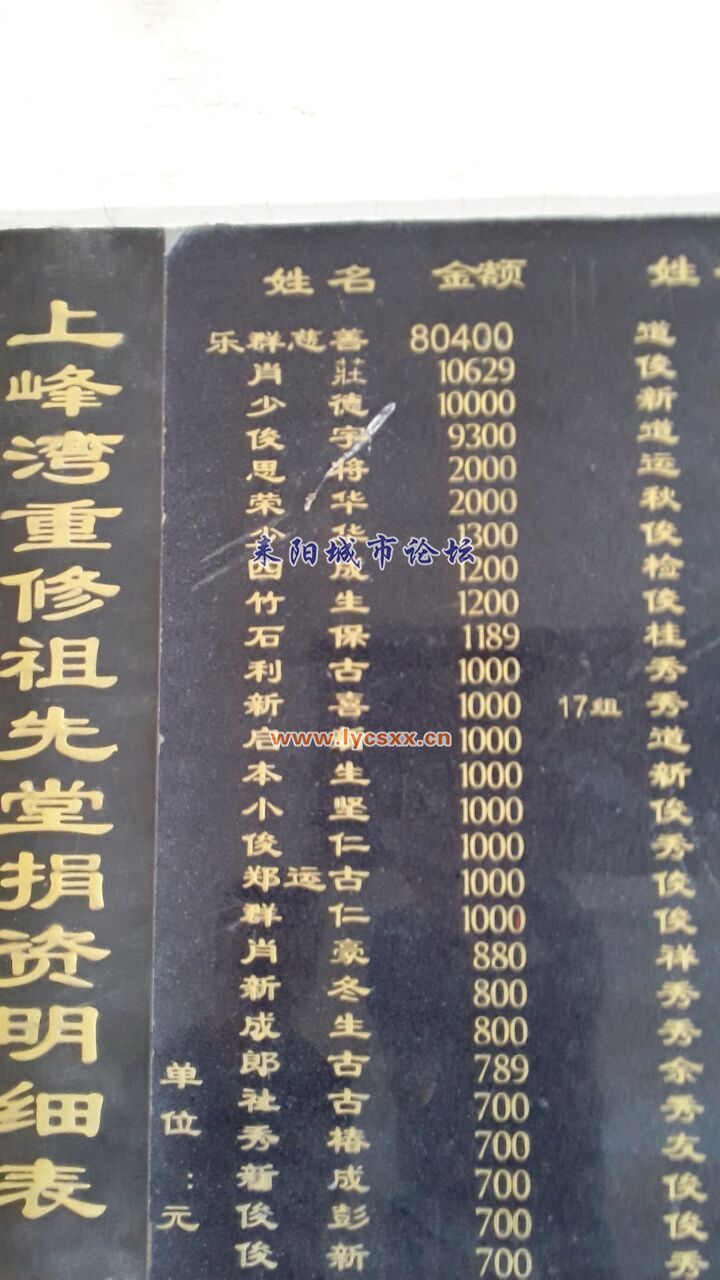 上峰湾重修祖先堂捐资明细表
单位:元
姓名 金额 姓
乐群慈善 80400 道
肖莊 10629 俊
少德 10000 新
俊宇 9300 道
思将 2000 运
荣华 2000 秋
少华 1300 俊
耒阳城市论坛
四成 1200 检
竹生 1200 俊
石保 1189 桂
利古 1000 秀
新喜 1000 17组 秀
www.lycsxx.cn
启 1000 道
本生 1000 新
小坚 1000 俊
俊仁 1000 秀
郑运古 1000 俊
群仁 1000 俊
肖豪 880 祥
新冬 800 秀
成生 800 秀
郎古 789 余
社古 700 秀
秀椿 700 友
新成 700 俊
俊彭 700 俊
俊新 700 秀